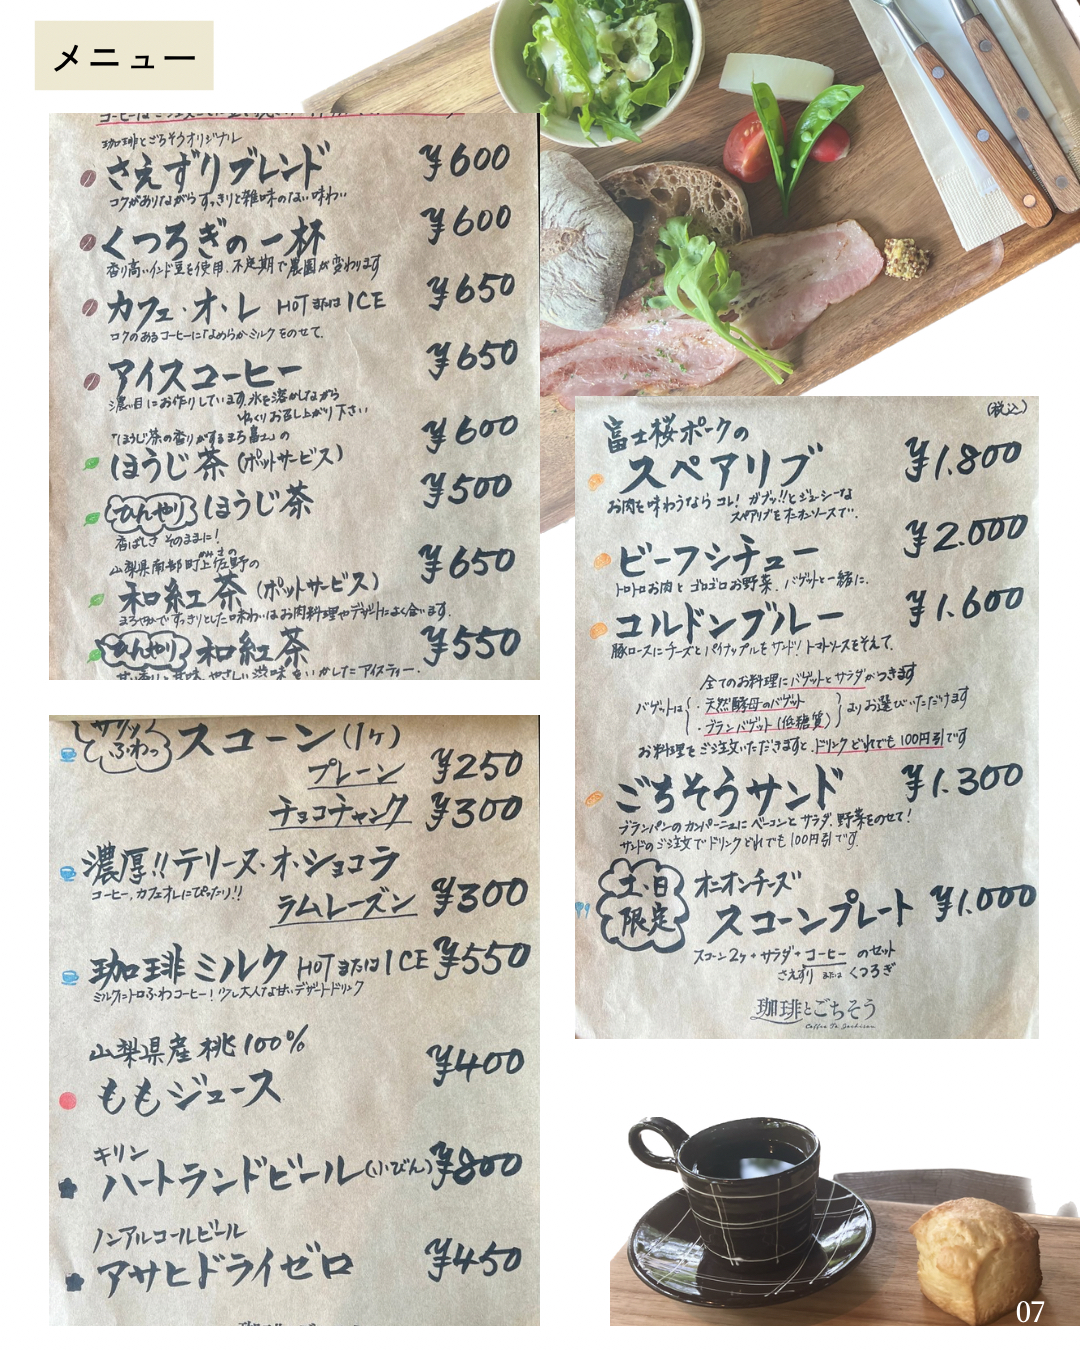 メニュー
珈琲とごちそうオリジナル
さえずりブレンド ¥600
コクがありながらすっきりと雑味のない味わい
くつろぎの一杯 ¥600
香り高いインド豆を使用.不定期で農園が変わります
カフェ・オ・レ HOTまたはICE ¥650
コクのあるコーヒーになめらかミルクをのせて.
アイスコーヒー ¥650
濃い目にお作りしています.氷を溶かしながら
ゆっくりお召し上がり下さい
「ほうじ茶の香りがするまち富士」の
ほうじ茶(ポットサービス) ¥600
ひんやり ほうじ茶 ¥500
香ばしさ そのままに!
山梨県南部町上佐野の
かみさの
和紅茶(ポットサービス) ¥650
まろやかですっきりとした味わいはお肉料理やデザートによく合います.
ひんやり 和紅茶 ¥550
甘い香りと甘味、やさしい渋味をいかしたアイスティー.
サクッ
ふわっ
スコーン(1ケ)
プレーン ¥250
チョコチャンク ¥300
濃厚!!テリーヌ・オ・ショコラ
コーヒー,カフェオレにぴったり!!
ラムレーズン ¥300
珈琲ミルク HOTまたはICE ¥550
ミルクにトロふわコーヒー!少し大人な甘いデザートドリンク
山梨県産桃100%
ももジュース ¥400
キリン
ハートランドビール(小びん) ¥800
ノンアルコールビール
アサヒドライゼロ ¥450
(税込)
富士桜ポークの
スペアリブ ¥1.800
お肉を味わうならコレ! ガブッ!!とジューシーな
スペアリブをオニオンソースで..
ビーフシチュー ¥2.000
トロトロお肉とゴロゴロお野菜.バゲットと一緒に.
コルドンブルー ¥1.600
豚ロースにチーズとパイナップルをサンド!トマトソースをそえて.
全てのお料理にバゲットとサラダがつきます
バゲットは{・天然酵母のバゲット
・ブランバゲット(低糖質)}よりお選びいただけます
お料理をご注文いただきますと.ドリンクどれでも100円引です
ごちそうサンド ¥1.300
ブランパンのカンパーニュにベーコンとサラダ.野菜をのせて!
サンドのご注文でドリンクどれでも100円引です.
土・日
限定
オニオンチーズ
スコーンプレート ¥1.000
スコーン2ケ+サラダ+コーヒーのセット
さえずりまたはくつろぎ
珈琲とごちそう
Coffee To Gochisou
07